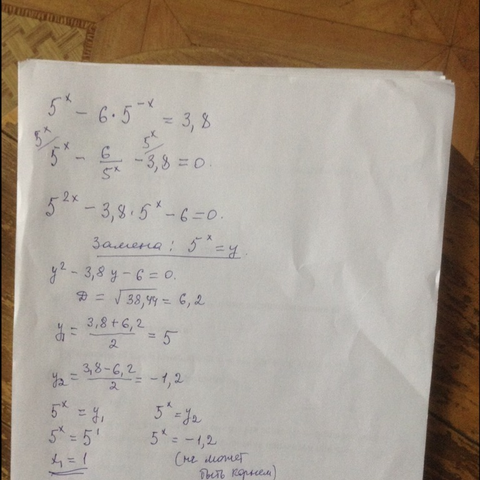 5^x − 6 · 5^−x = 3,8
5^x/ 5^x − 6/5^x 5^x/ − 3,8 = 0.
5^2x − 3,8 · 5^x − 6 = 0.
Замена: 5^x = y
y² − 3,8 y − 6 = 0.
D = √38,44 = 6,2
y₁ = (3,8 + 6,2)/2 = 5
y₂ = (3,8 − 6,2)/2 = −1,2
5^x = y₁ 5^x = y₂
5^x = 5^1 5^x = −1,2
x₁ = 1 (не может
быть корнем)